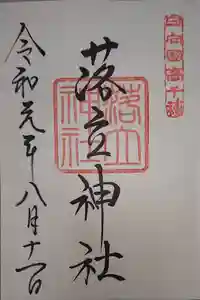 日向國高千穂
落立神社
落立神社
令和元年八月十一日